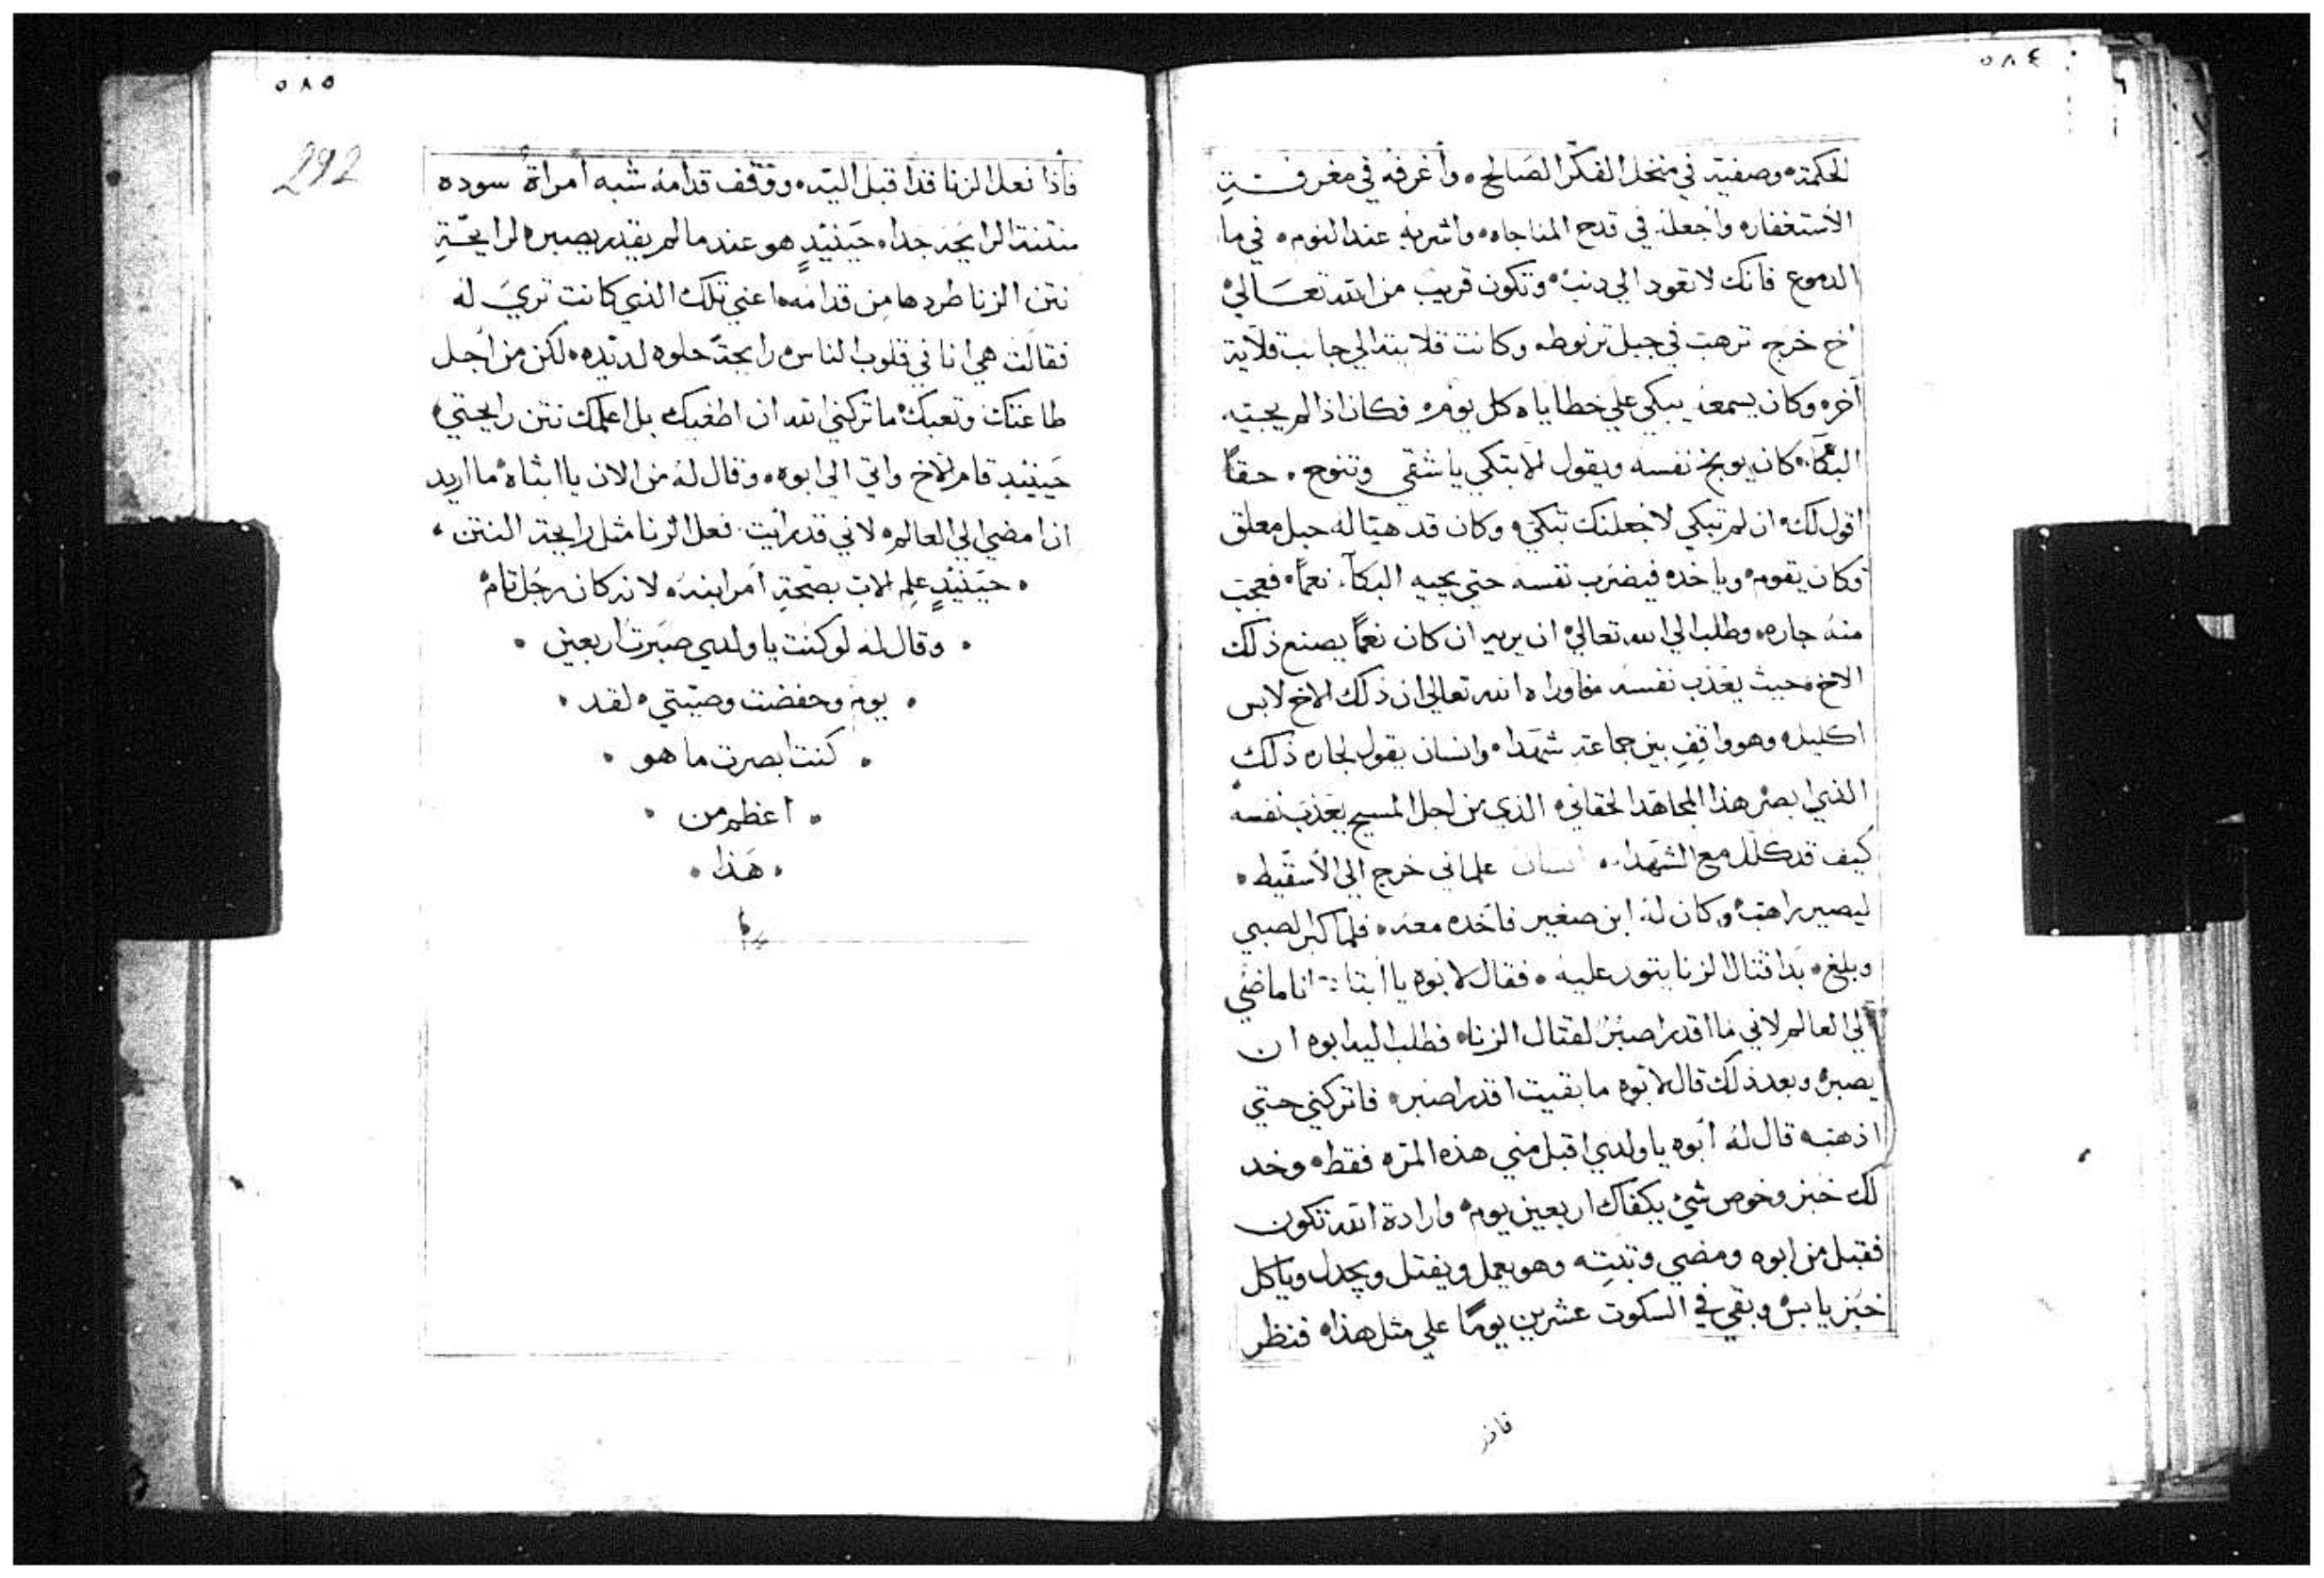 ٥٨٤
الحكمة وصفيه في منخل الفكر الصالح وأغرفه في مغرفة
الأستغفار وأجعله في قدح المناجاه واشربه عند النوم في ما
الدموع فانك لا تعود الي دنب وتكون قريب من الله تعالي
اخ خرج ترهب في جبل ترنوط وكانت قلايته الي جانب قلاية
آخر وكان يسمعه يبكي علي خطاياه كل يوم فكان اذا لم يجيه
البكآ كان يوبخ نفسه ويقول الا تبكي يا شقي وتنوح حقاً
اقول لك ان لم تبكي لاجعلنك تبكي وكان قد هيا له حبل معلق
وكان يقوم وياخده فيضرب نفسه حتي يجيه البكآ نعماً فعجب
منه جاره وطلب الي الله تعالي ان يريه ان كان نعماً يصنع ذلك
الاخ حيث يعذب نفسه فاوراه الله تعالي ان ذلك الاخ لابس
اكليل وهو واقف بين جماعة شهدا وانسان يقول لجاره ذلك
الذي ابصر هذا المجاهد الحقاني الذي من اجل المسيح يعذب نفسه
كيف قد كلل مع الشهدا انسان علماني خرج الي الأسقيط
ليصير راهب وكان له ابن صغير فاخده معه فلما كبر الصبي
وبلغ بدا قتال الزنا يتور عليه فقال لابوه يا ابتاه انا ماضي
الي العالم لاني ما اقدر اصبر لقتال الزنا فطلب اليه ابوه ان
يصبر وبعد ذلك قال لابوه ما بقيت اقدر اصبر فاتركني حتي
اذهب قال له ابوه يا ولدي اقبل مني هذه المره فقط وخد
لك خبز وخوص شي يكفاك اربعين يوم وارادة الله تكون
فقبل من ابوه ومضي وهو يعمل ويفتل ويجدل وياكل
خبز يابس وبقي في السكوت عشرين يوماً علي مثل هذا فنظر
فاذ
٥٨٥
292
فأذا فعل الزنا قد اقبل اليه ووقف قدامه شبه امراة سوده
منتنة الرايحه جدا حينيذٍ هو عندما لم يقدر يصبر لرايحة
نتن الزنا طردها من قدامه اعني تلك الذي كانت تري له
فقالت هي انا في قلوب الناس رايحة حلوه لديده لكن من اجل
طاعتك وتعبك ما تركني الله ان اطغيك بل اعلمك نتن رايحتي
حينيذ قام الاخ واتي الي ابوه وقال له من الان يا ابتاه ما اريد
ان امضي الي العالم لاني قد رأيت فعل الزنا مثل رايحة النتن
حينيذٍ علم الاب بصحة امر ابنه لانه كان رجل تام
وقال له لو كنت يا ولدي صبرت اربعين
يوم وحفضت وصيتي لقد
كنت ابصرت ما هو
اعظم من
هذا